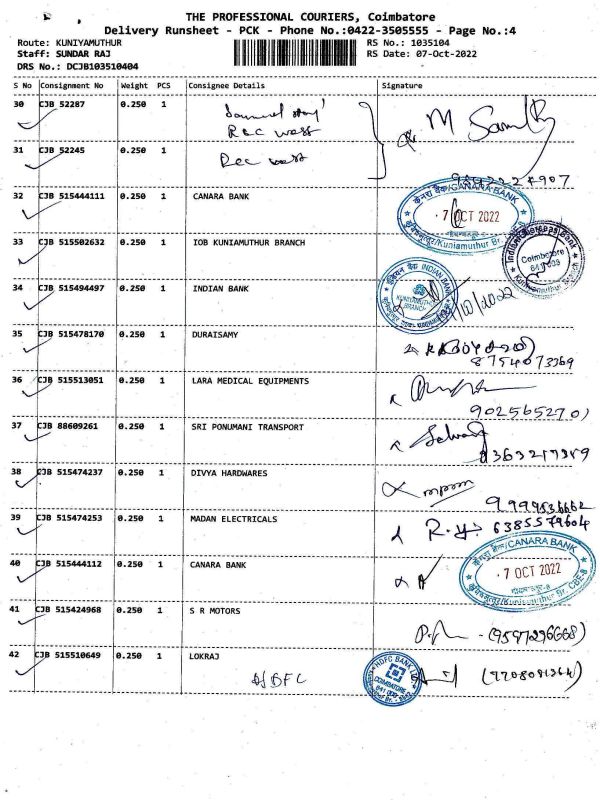 THE PROFESSIONAL COURIERS, Coimbatore
Delivery Runsheet - PCK - Phone No.:0422-3505555 - Page No.:4
Route: KUNIYAMUTHUR
RS No.: 1035104
Staff: SUNDAR RAJ
RS Date: 07-Oct-2022
DRS No.: DCJB103510404
S No Consignment No Weight PCS Consignee Details Signature
30 CJB 52287 0.250 1
Rec west
31 CJB 52245 0.250 1 Rec west
32 CJB 515444111 0.250 1 CANARA BANK
केनरा बैंक/CANARA BANK
7 OCT 2022
Kuniamuthur Br.
33 CJB 515502632 0.250 1 IOB KUNIAMUTHUR BRANCH
Indian Overseas Bank
Coimbatore
Kuniamuthur Branch
34 CJB 515494497 0.250 1 INDIAN BANK
इंडियन बैंक INDIAN BANK
KUNIYAMUTHUR
BRANCH
/10/2022
35 CJB 515478170 0.250 1 DURAISAMY
8754073369
36 CJB 515513051 0.250 1 LARA MEDICAL EQUIPMENTS
9025652701
37 CJB 88609261 0.250 1 SRI PONUMANI TRANSPORT
38 CJB 515474237 0.250 1 DIVYA HARDWARES
39 CJB 515474253 0.250 1 MADAN ELECTRICALS
6385579604
40 CJB 515444112 0.250 1 CANARA BANK
केनरा बैंक/CANARA BANK
7 OCT 2022
Kuniamuthur Br. CBE-8
41 CJB 515424968 0.250 1 S R MOTORS
(9597296668)
42 CJB 515510649 0.250 1 LOKRAJ
HDFC BANK LTD
COIMBATORE